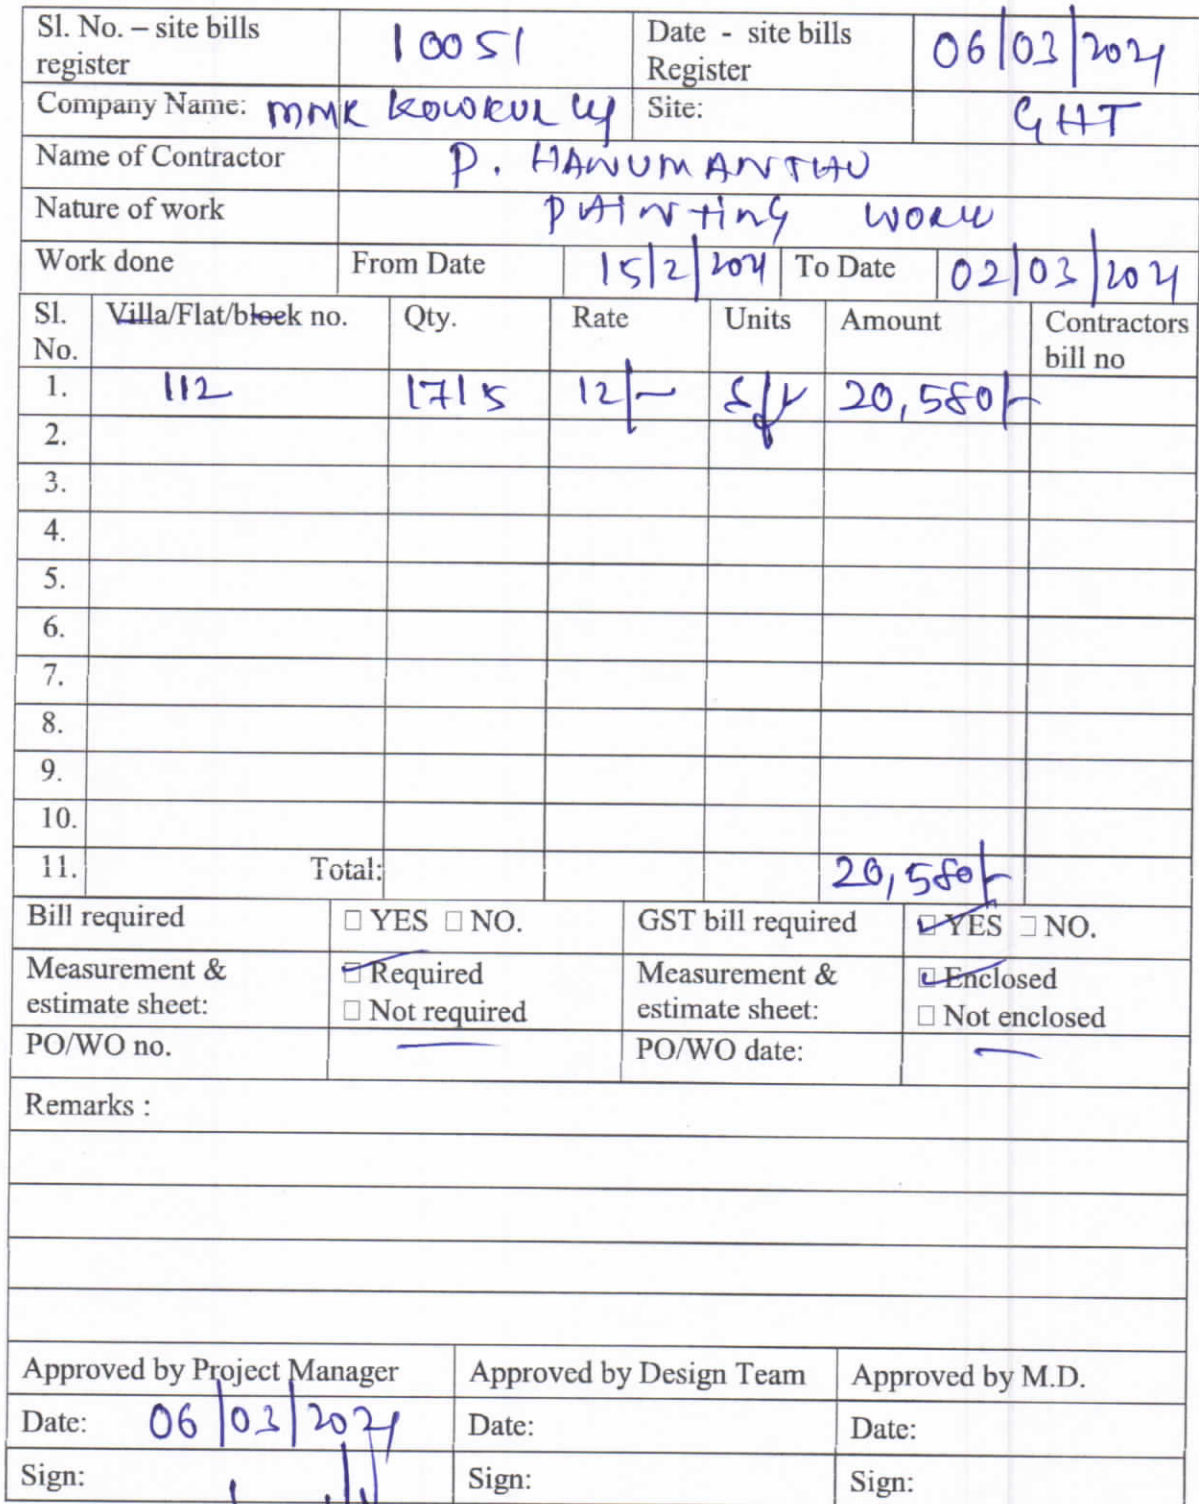 Sl. No. – site bills register 10051 Date - site bills Register 06/03/2021
Company Name: MMR KOWKUR LLP Site: GHT
Name of Contractor P. HANUMANTHU
Nature of work PAINTING WORK
Work done From Date 15/2/2021 To Date 02/03/2021
Sl. No. Villa/Flat/block no. Qty. Rate Units Amount Contractors bill no
1. 112 1715 12/- sft 20,580/-
2.
3.
4.
5.
6.
7.
8.
9.
10.
11. Total: 20,580/-
Bill required □ YES □ NO. GST bill required ☑ YES □ NO.
Measurement & estimate sheet: ☑ Required □ Not required Measurement & estimate sheet: ☑ Enclosed □ Not enclosed
PO/WO no. — PO/WO date: —
Remarks :
Approved by Project Manager Approved by Design Team Approved by M.D.
Date: 06/03/2021 Date: Date:
Sign: Sign: Sign: